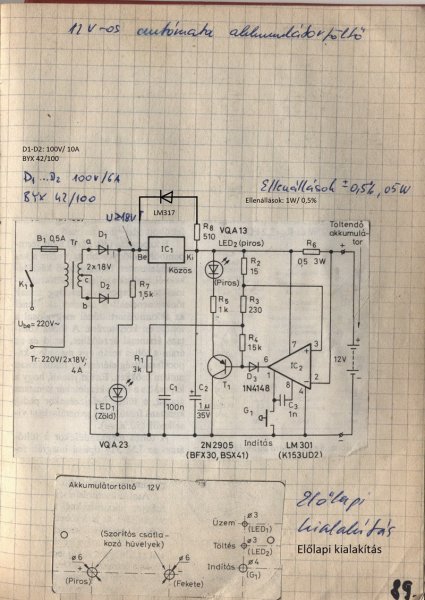 12 V-os autómata akkumulátortöltő
D1-D2: 100V/ 10A
BYX 42/100
D₁...D₂ 100V/6A
BYX 42/100
Ellenállások ± 0,5%, 05W
Ellenállások: 1W/ 0,5%
LM317
U≥18V
VQA13
LED₂ (piros)
R₈
510
Töltendő
akkumulá-
tor
B₁ 0,5A
Tr
a
D₁
2x18V
c
b
D₂
Be
IC₁
Ki
Közös
(Piros)
R₂
15
R₆
0,5 3W
K₁
R₇
1,5k
R₅
1k
R₃
230
Ube=220V~
R₄
15k
7
3
Tr: 220V/2x18V;
4A
R₁
3k
T₁
D₃
6
IC₂
2
12V
1N4148
1
8
4
LED₁
(Zöld)
C₁
100n
C₂
1µ
35V
G₁
C₃
1n
Indítás
VQA23
2N2905
(BFX30, BSX41)
LM301
(K153UD2)
Akkumulátortöltő 12V
(Szorítós csatla-
kozó hüvelyek)
ø6
+
(Piros)
ø6
-
(Fekete)
Üzem
ø3
(LED₁)
Töltés
ø3
(LED₂)
Indítás
ø4
(G₁)
Előlapi
kialakítás
Előlapi kialakítás
89.